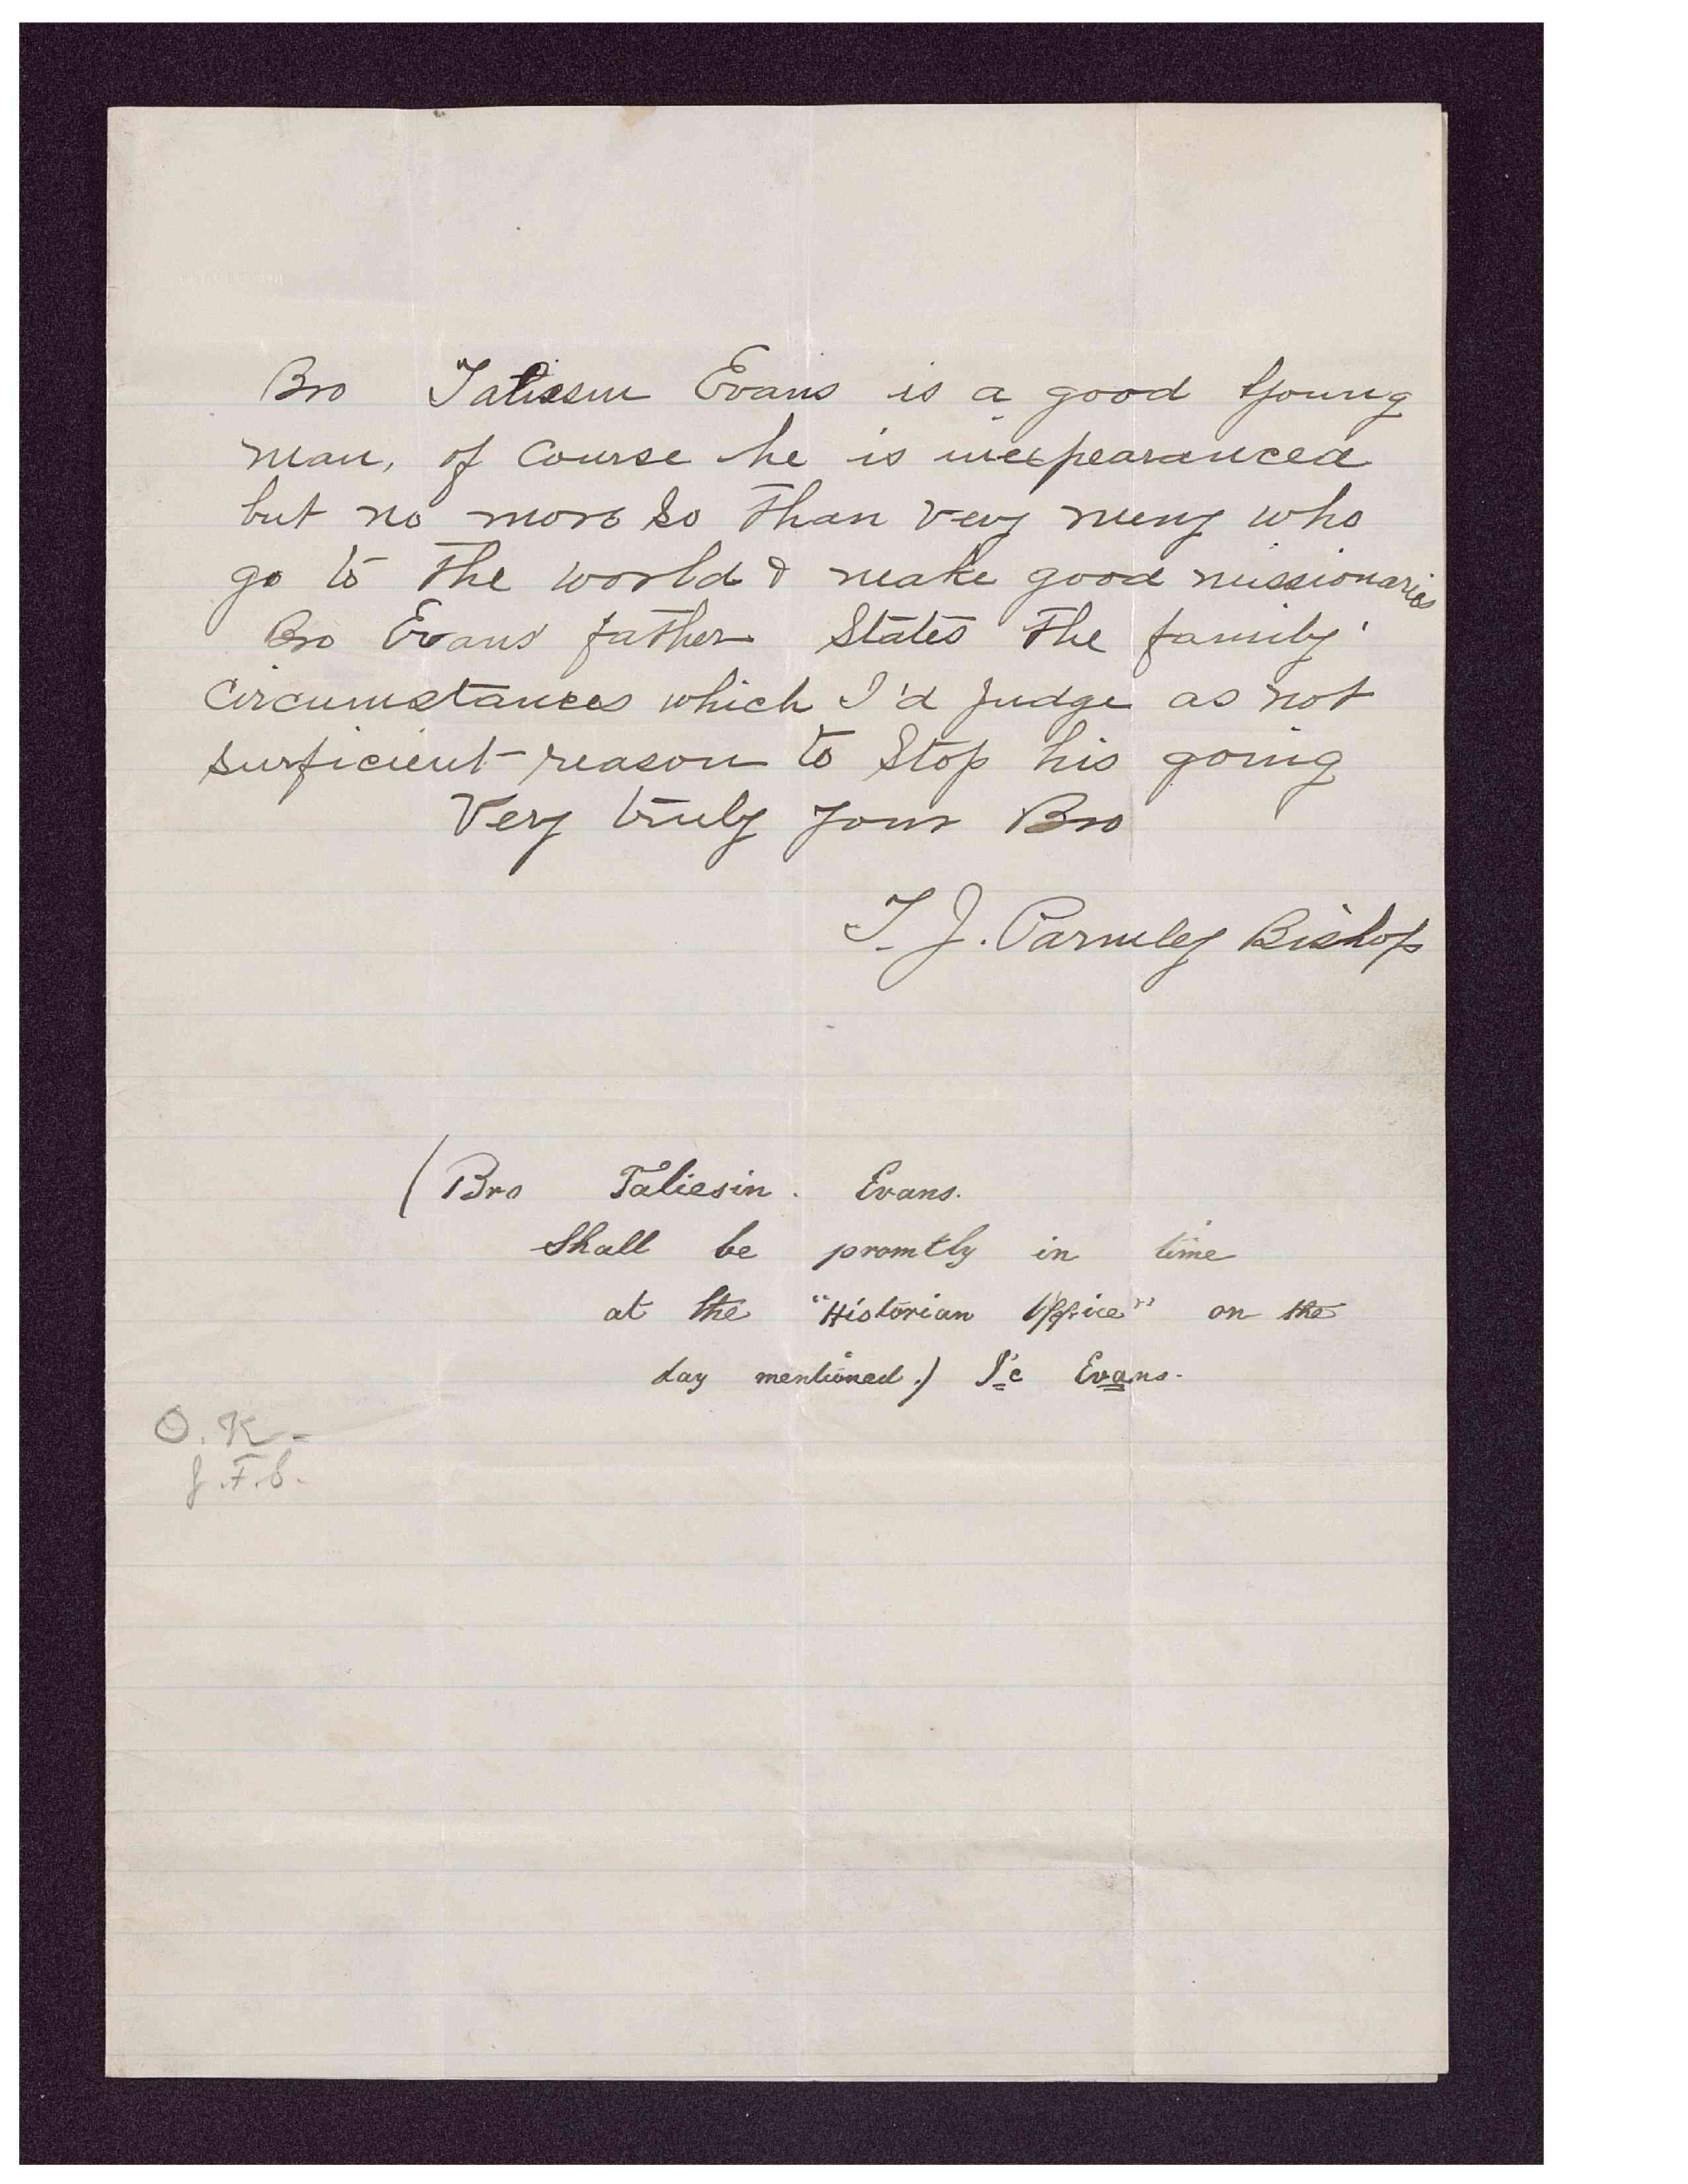 Bro Taliesin Evans is a good young
man, of course he is inexpearanced
but no more so than very meny who
go to the world & make good missionaries
Bro Evans' father states the family
circumstances which I'd judge as not
surficient reason to stop his going
Very truly your Bro
T. J. Parmley Bishop
(Bro Taliesin. Evans.
Shall be promtly in time
at the "Historian Office" on the
day mentioned.) Evans.
O. K.-
J. F. S.